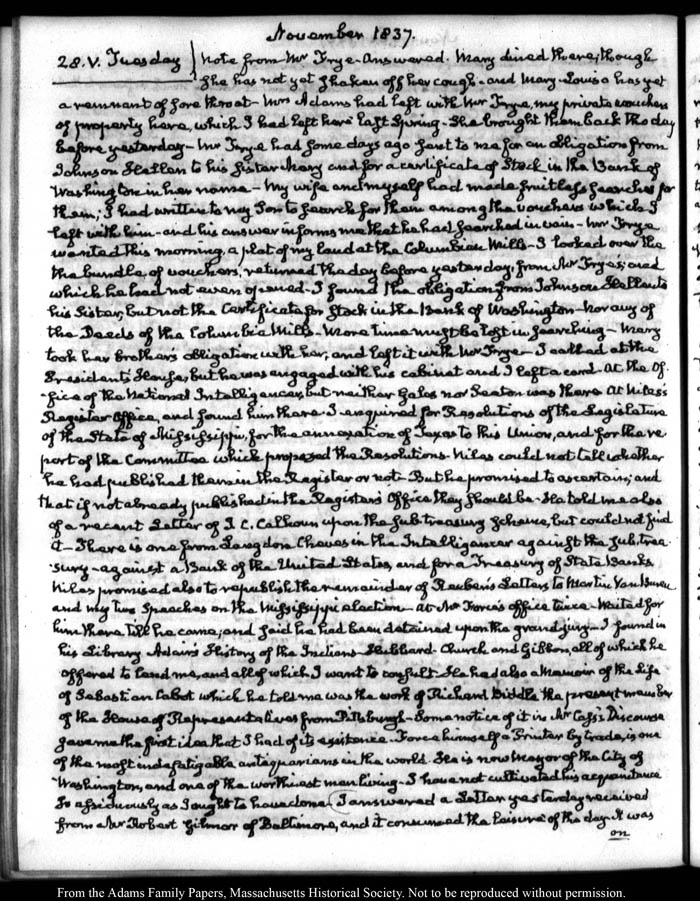 November 1837.
28. V. Tuesday Note from Mr Frye. Answered. Mary dined there; though
She has not yet Shaken off her cough - and Mary-Louisa has yet
a remnant of Sore throat - Mrs Adams had left with Mr Frye, my private vouchers
of property here, which I had left here last Spring - She brought them back the day
before yesterday - Mr Frye had Some days ago Sent to me for an obligation from
Johnson Hellen to his Sister Mary and for a certificate of Stock in the Bank of
Washington in her name - My wife and myself had made fruitless Searches for
them; I had written to my Son to Search for them among the vouchers which I
left with him - and his answer informs me that he had Searched in vain - Mr Frye
wanted this morning, a plat of my land at the Columbian Mills - I looked over the
the bundle of vouchers, returned the day before yesterday, from Mr Frye's; and
which he had not even opened - I found the obligation from Johnson Hellen to
his Sister, but not the Certificate for Stock in the Bank of Washington - nor any of
the Deeds of the Columbia Mills - More time must be lost in Searching - Mary
took her brother's obligation with her, and left it with Mr Frye - I called at the
President's House, but he was engaged with his cabinet and I left a card - At the Of-
fice of the National Intelligencer, but neither Gales nor Seaton was there At Niles's
Register Office, and found him there I enquired for Resolutions of the Legislature
of the State of Mississippi, for the annexation of Texas to this Union, and for the re-
port of the Committee which proposed the Resolutions - Niles could not tell whether
he had published them in the Register or not - But he promised to ascertain; and
that if not already published in the Register Office they Should be - He told me also
of a recent Letter of J. C. Calhoun upon the Sub treasury Scheme, but could not find
it - There is one from Langdon Cheves in the Intelligencer against the Sub, trea-
sury - against a Bank of the United States, and for a Treasury of State Banks
Niles promised also to republish the remainder of Reuben's Letters to Martin Van Buren
and my two Speeches on the Mississippi election - At Mr Force's office twice - Waited for
him there till he came; and Said he had been detained upon the grand jury - I found in
his Library Adair's History of the Indians - Hubbard - Church and Gibbon, all of which he
offered to lend me, and all of which I want to consult - He had also a Memoir of the Life
of Sebastian Cabot which he told me was the work of Richard Biddle the present member
of the House of Representatives from Pittsburgh - Some notice of it in Mr Cass's Discourse
gave me the first idea that I had of its existence - Force himself a Printer by trade, is one
of the most indefatigable antiquarians in the world. He is now Mayor of the City of
Washington, and one of the worthiest men living - I have not cultivated his acquaintance
So assiduously as I ought to have done I answered a Letter yesterday received
from a Mr Robert Gilmor of Baltimore, and it consumed the leisure of the day. It was
on
From the Adams Family Papers, Massachusetts Historical Society. Not to be reproduced without permission.